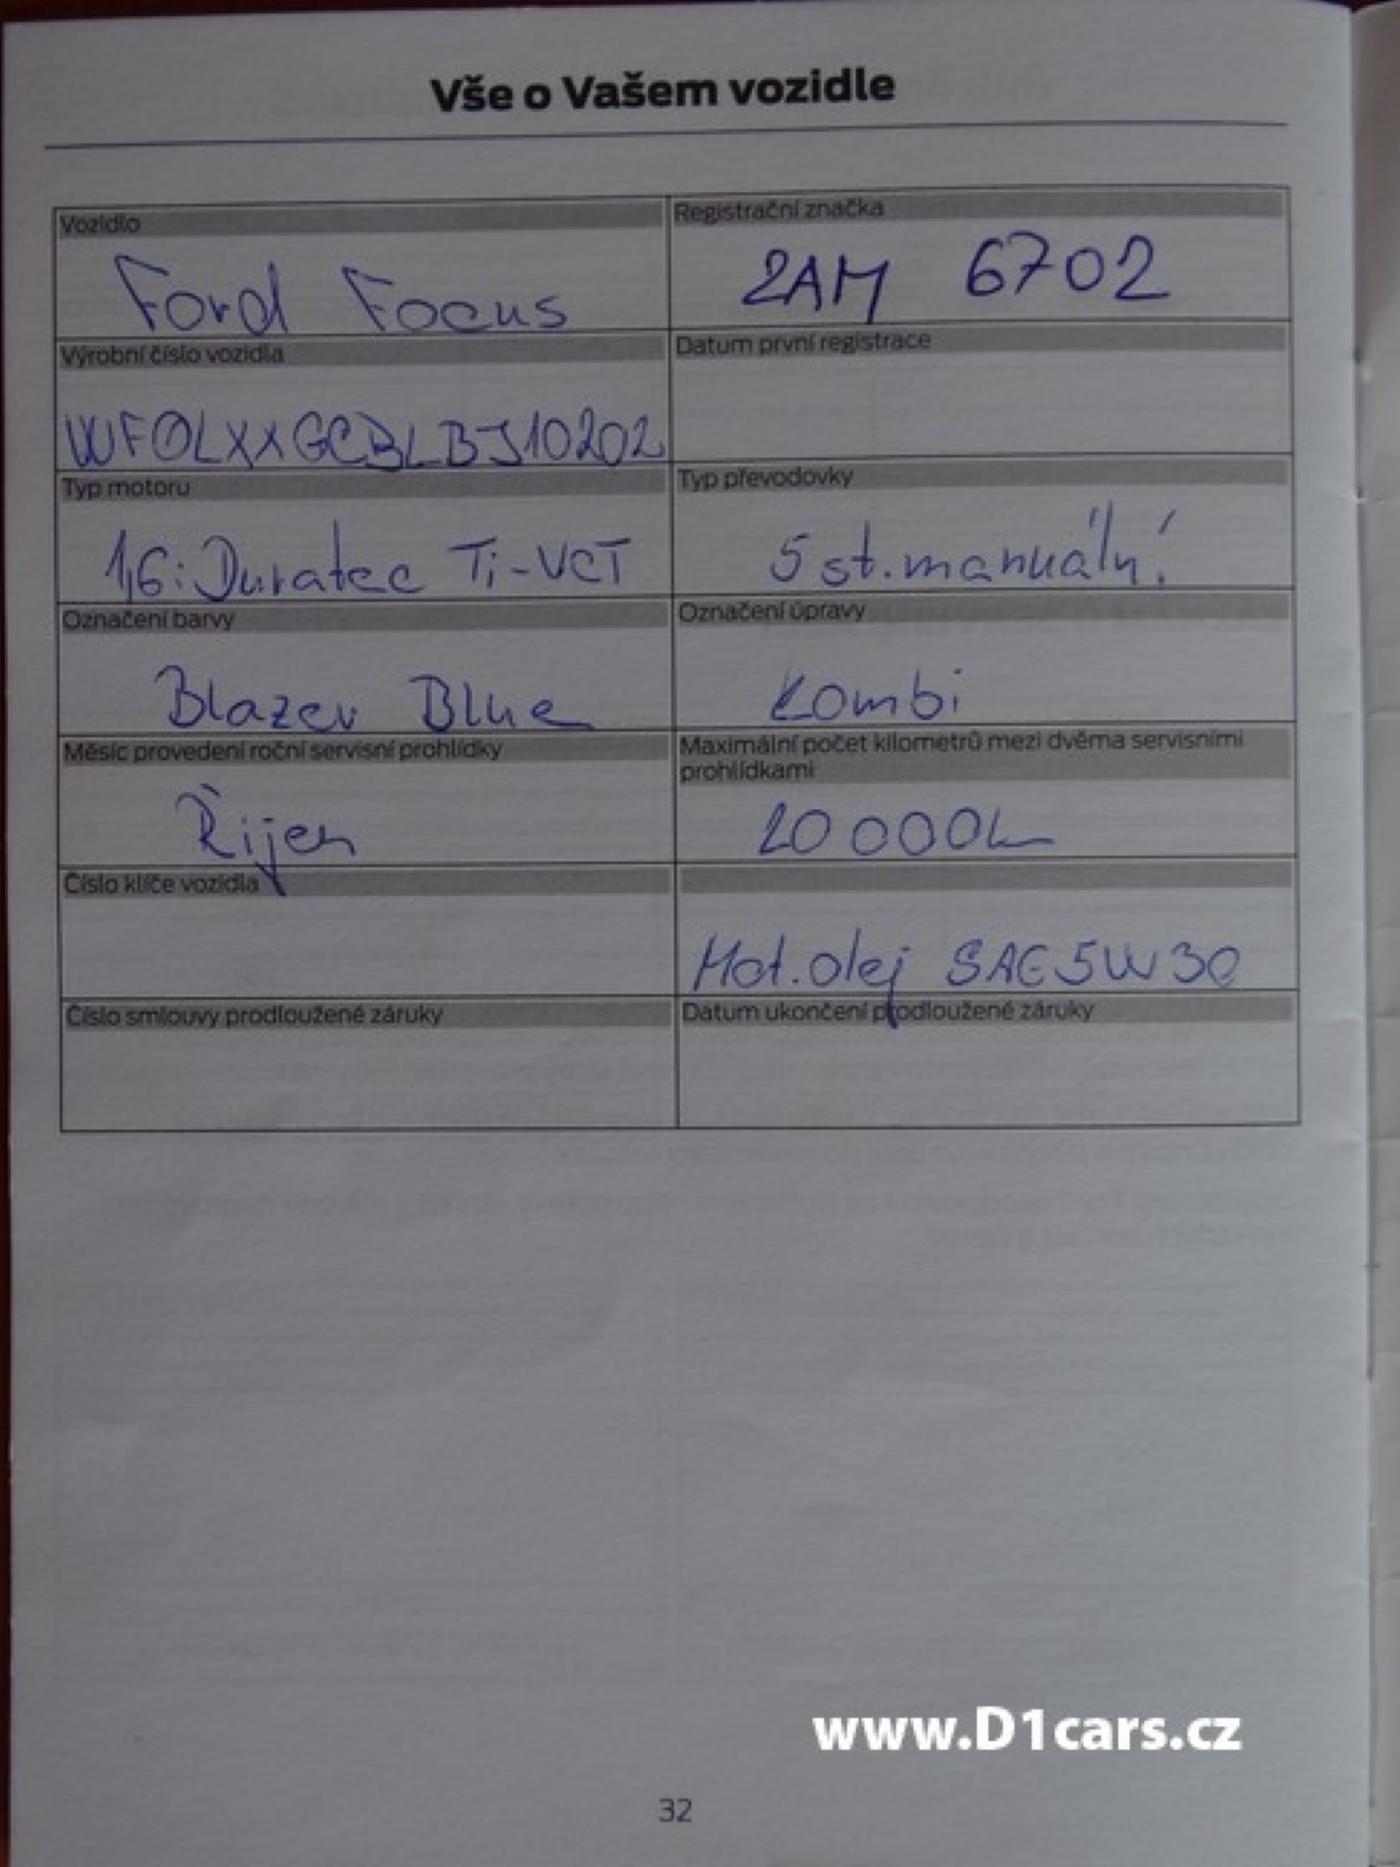 Vše o Vašem vozidle
Vozidlo
Registrační značka
Ford Focus
2AM 6702
Výrobní číslo vozidla
Datum první registrace
WF0LXXGCBLBJ10202
Typ motoru
Typ převodovky
1,6i Duratec Ti-VCT
5 st. manuální
Označení barvy
Označení úpravy
Blazer Blue
Kombi
Měsíc provedení roční servisní prohlídky
Maximální počet kilometrů mezi dvěma servisními
prohlídkami
Říjen
20 000 km
Číslo klíče vozidla
Mot. olej SAE 5W30
Číslo smlouvy prodloužené záruky
Datum ukončení prodloužené záruky
www.D1cars.cz
32